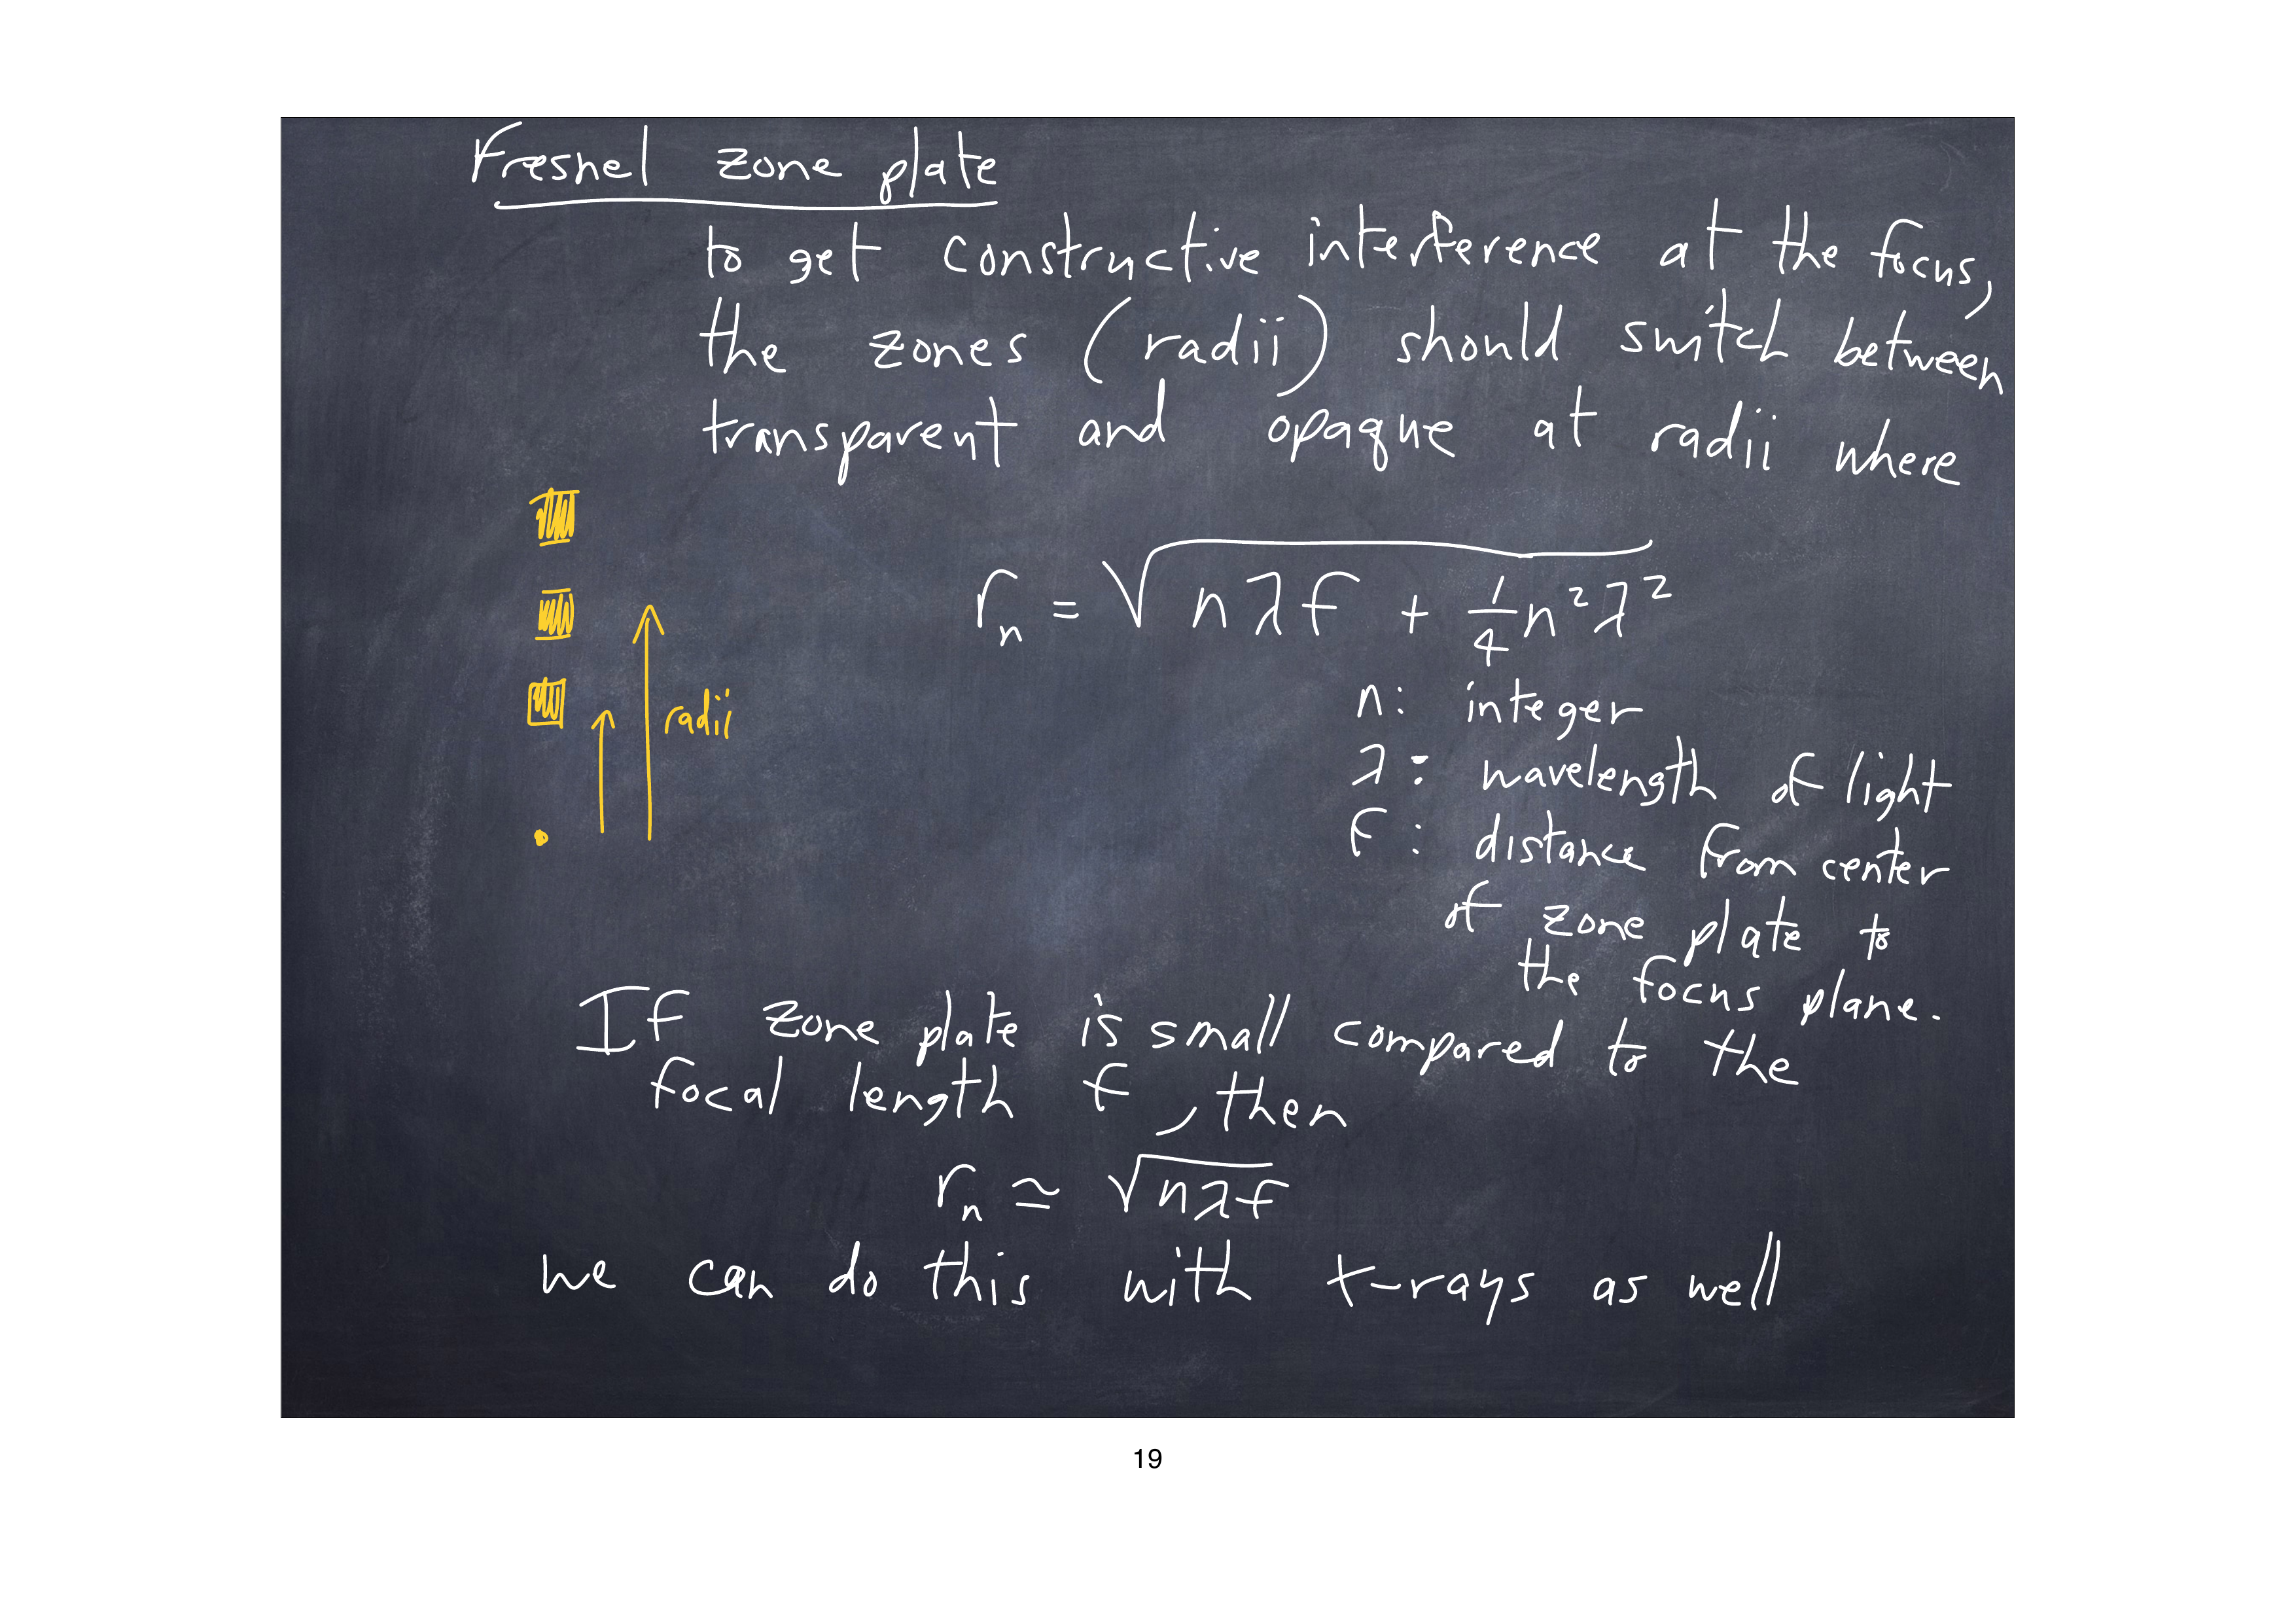 Fresnel zone plate
to get constructive interference at the focus,
the zones (radii) should switch between
transparent and opaque at radii where
rₙ = √(nλf + 1/4 n²λ²)
radii
n: integer
λ: wavelength of light
f: distance from center
of zone plate to
the focus plane.
If zone plate is small compared to the
focal length f, then
rₙ ≃ √(nλf)
we can do this with x-rays as well
19